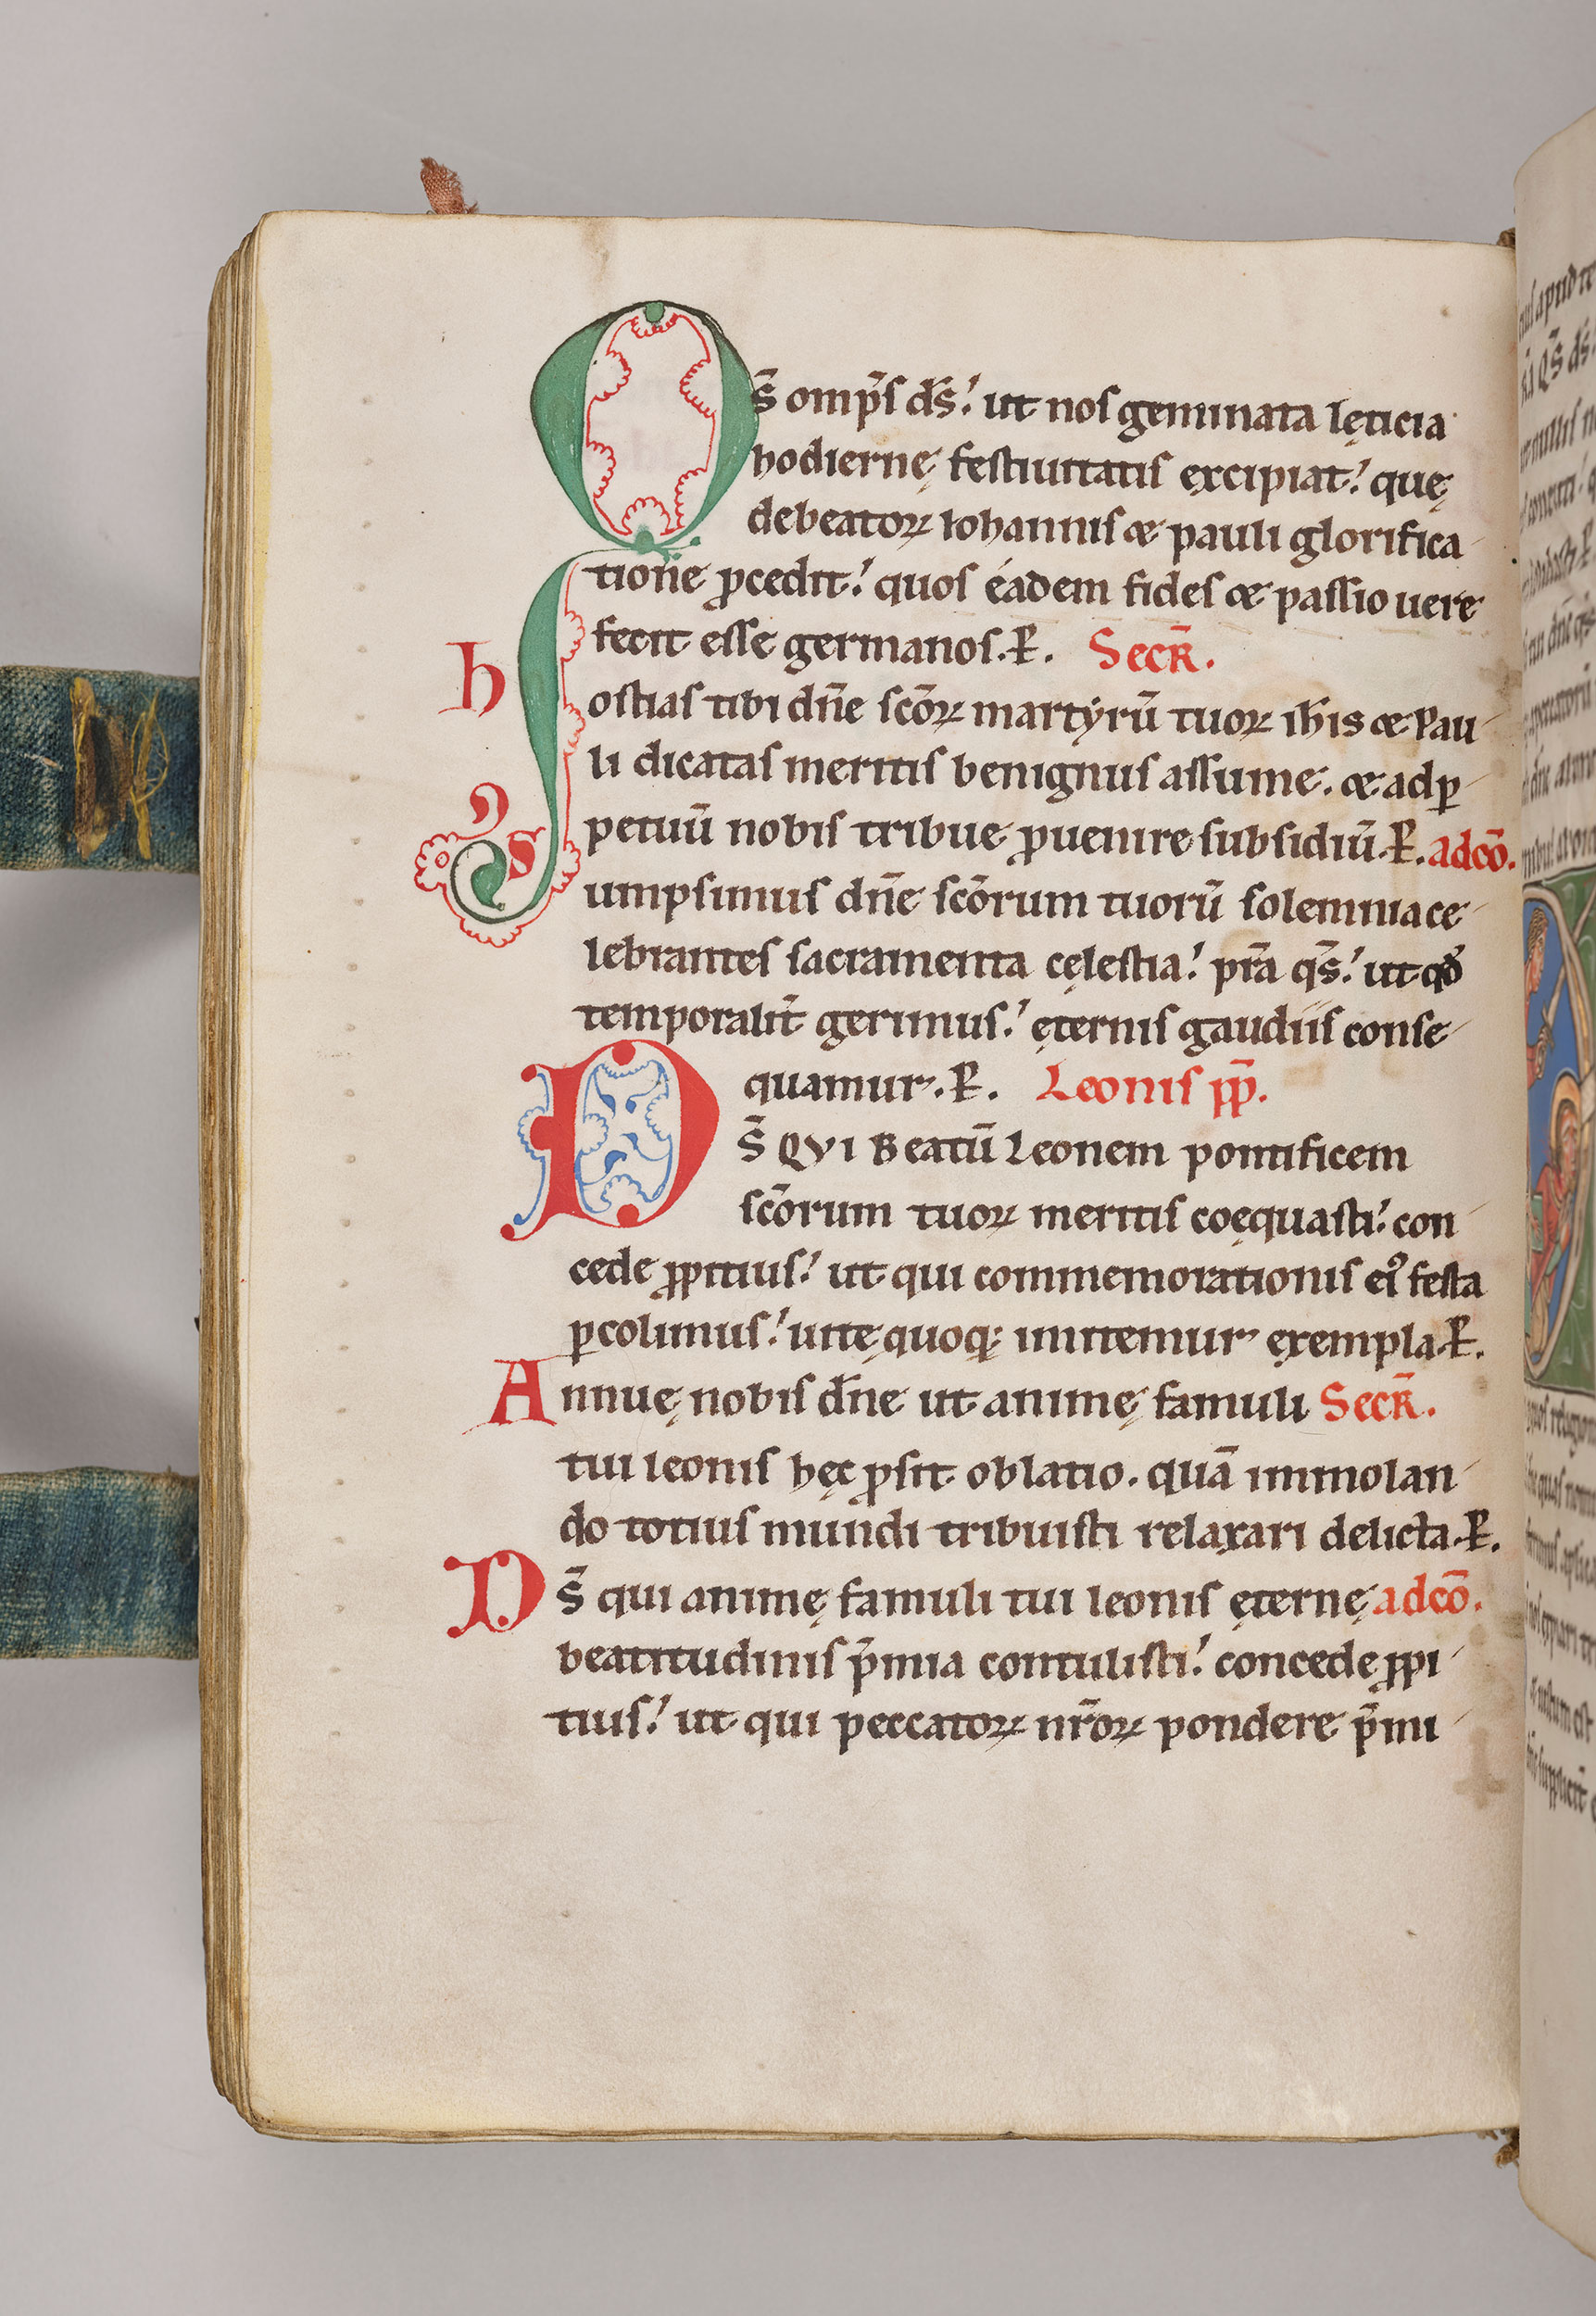 Qs̄ omp̄s ds̄. ut nos geminata lęticia
hodiernę festiuitatis excipiat. quę
de beatoꝝ iohannis & pauli glorifica
tione ꝓcedit. quos eadem fides & passio uere
fecit esse germanos. P̶. Secr̄.
Hostias tibi dn̄e sc̄oꝝ martyrū tuoꝝ ioh̄is & Pau
li dicatas meritis benignus assume. & ad ꝑ
petuū nobis tribue ꝓuenire subsidiū. P̶. ad cō.
Sumpsimus dn̄e sc̄orum tuorū solemnia ce
lebrantes sacramenta cęlestia. p̄ra qs̄. ut qđ
temporalit̄ gerimus. ęternis gaudiis conse
quamur. P̶. Leonis pp̄.
Ds̄ QVI Beatū Leonem pontificem
sc̄orum tuoꝝ meritis coęquasti. con
cede ꝓpitius. ut qui commemorationis eiꝰ festa
ꝑcolimus. uitę quoq; imitemur exempla. P̶.
Annuę nobis dn̄e ut animę famuli Secr̄.
tui leonis hęc ꝓsit oblatio. quā immolan
do totius mundi tribuisti relaxari delicta. P̶.
Ds̄ qui animę famuli tui leonis ęternę ad cō.
beatitudinis p̄mia contulisti. concede ꝓpi
tius. ut qui peccatoꝝ nr̄oꝝ pondere p̄mi